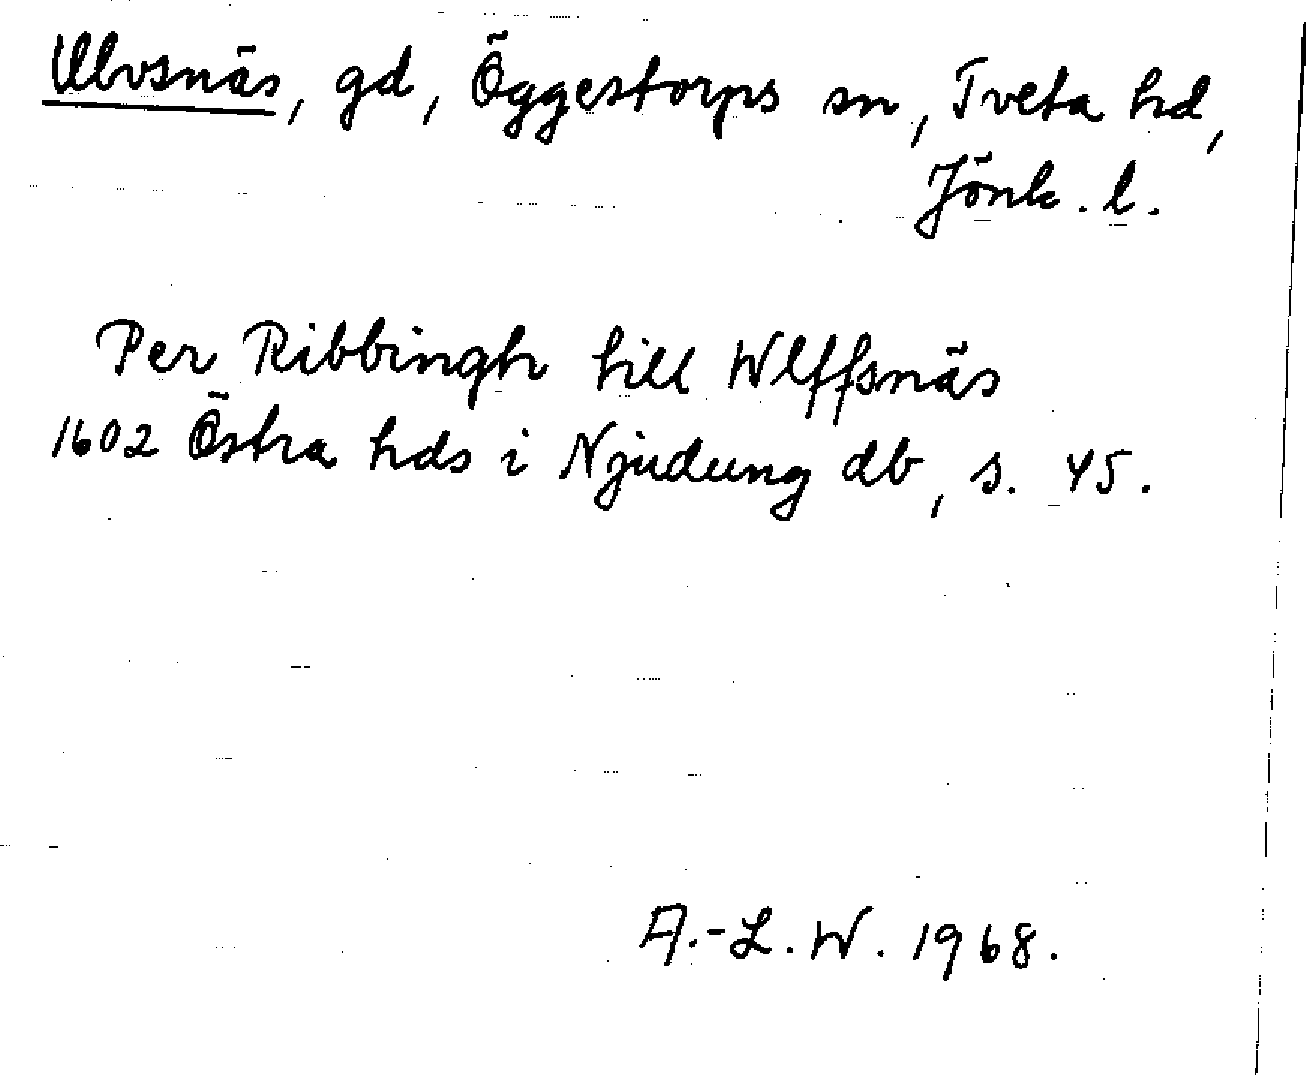 Ulvsnäs, gd, Öggestorps sn, Tveta hd,
Jönk. l.
Per Ribbingh till Wlffsnäs
1602 Östra hds i Njudung db, s. 45.
A.-L. W. 1968.